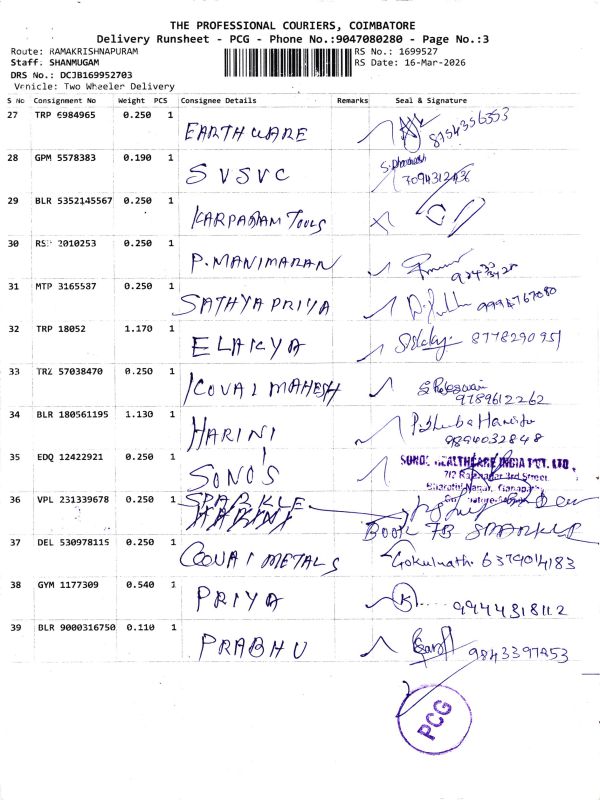 THE PROFESSIONAL COURIERS, COIMBATORE
Delivery Runsheet - PCG - Phone No.:9047080280 - Page No.:3
Route: RAMAKRISHNAPURAM RS No.: 1699527
Staff: SHANMUGAM RS Date: 16-Mar-2026
DRS No.: DCJB169952703
Vehicle: Two Wheeler Delivery
S No Consignment No Weight PCS Consignee Details Remarks Seal & Signature
27 TRP 6984965 0.250 1 EARTHWARE 8754356353
28 GPM 5578383 0.190 1 SVSVC 7094312436
29 BLR 5352145567 0.250 1 KARPAGAM TOOLS
30 2010253 0.250 1 P.MANIMARAN
31 MTP 3165587 0.250 1 SATHYAPRIYA 9994767080
32 TRP 18052 1.170 1 ELAKYA 8778290951
33 TRZ 57038470 0.250 1 KOVAI MAHESH 9789612262
34 BLR 180561195 1.130 1 HARINI 9894032848
35 EDQ 12422921 0.250 1 SONO'S HEALTHCARE INDIA PVT. LTD.,
3rd Street
36 VPL 231339678 0.250 1 SPARKLE
37 DEL 530978115 0.250 1 COVAI METALS Gokulnath. 6379014183
38 GYM 1177309 0.540 1 PRIYA 9944318112
39 BLR 9000316750 0.110 1 PRABHU 9843397853
PCG